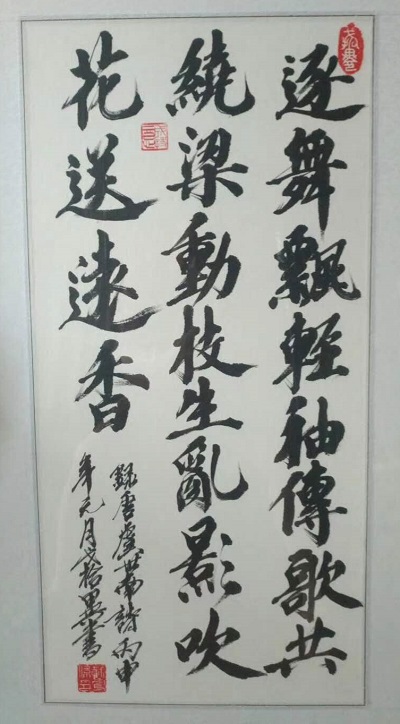 逐舞飄輕袖傳歌共
繞梁動枝生亂影吹
花送遠香
錄唐虞世南詩丙申
年元月
書